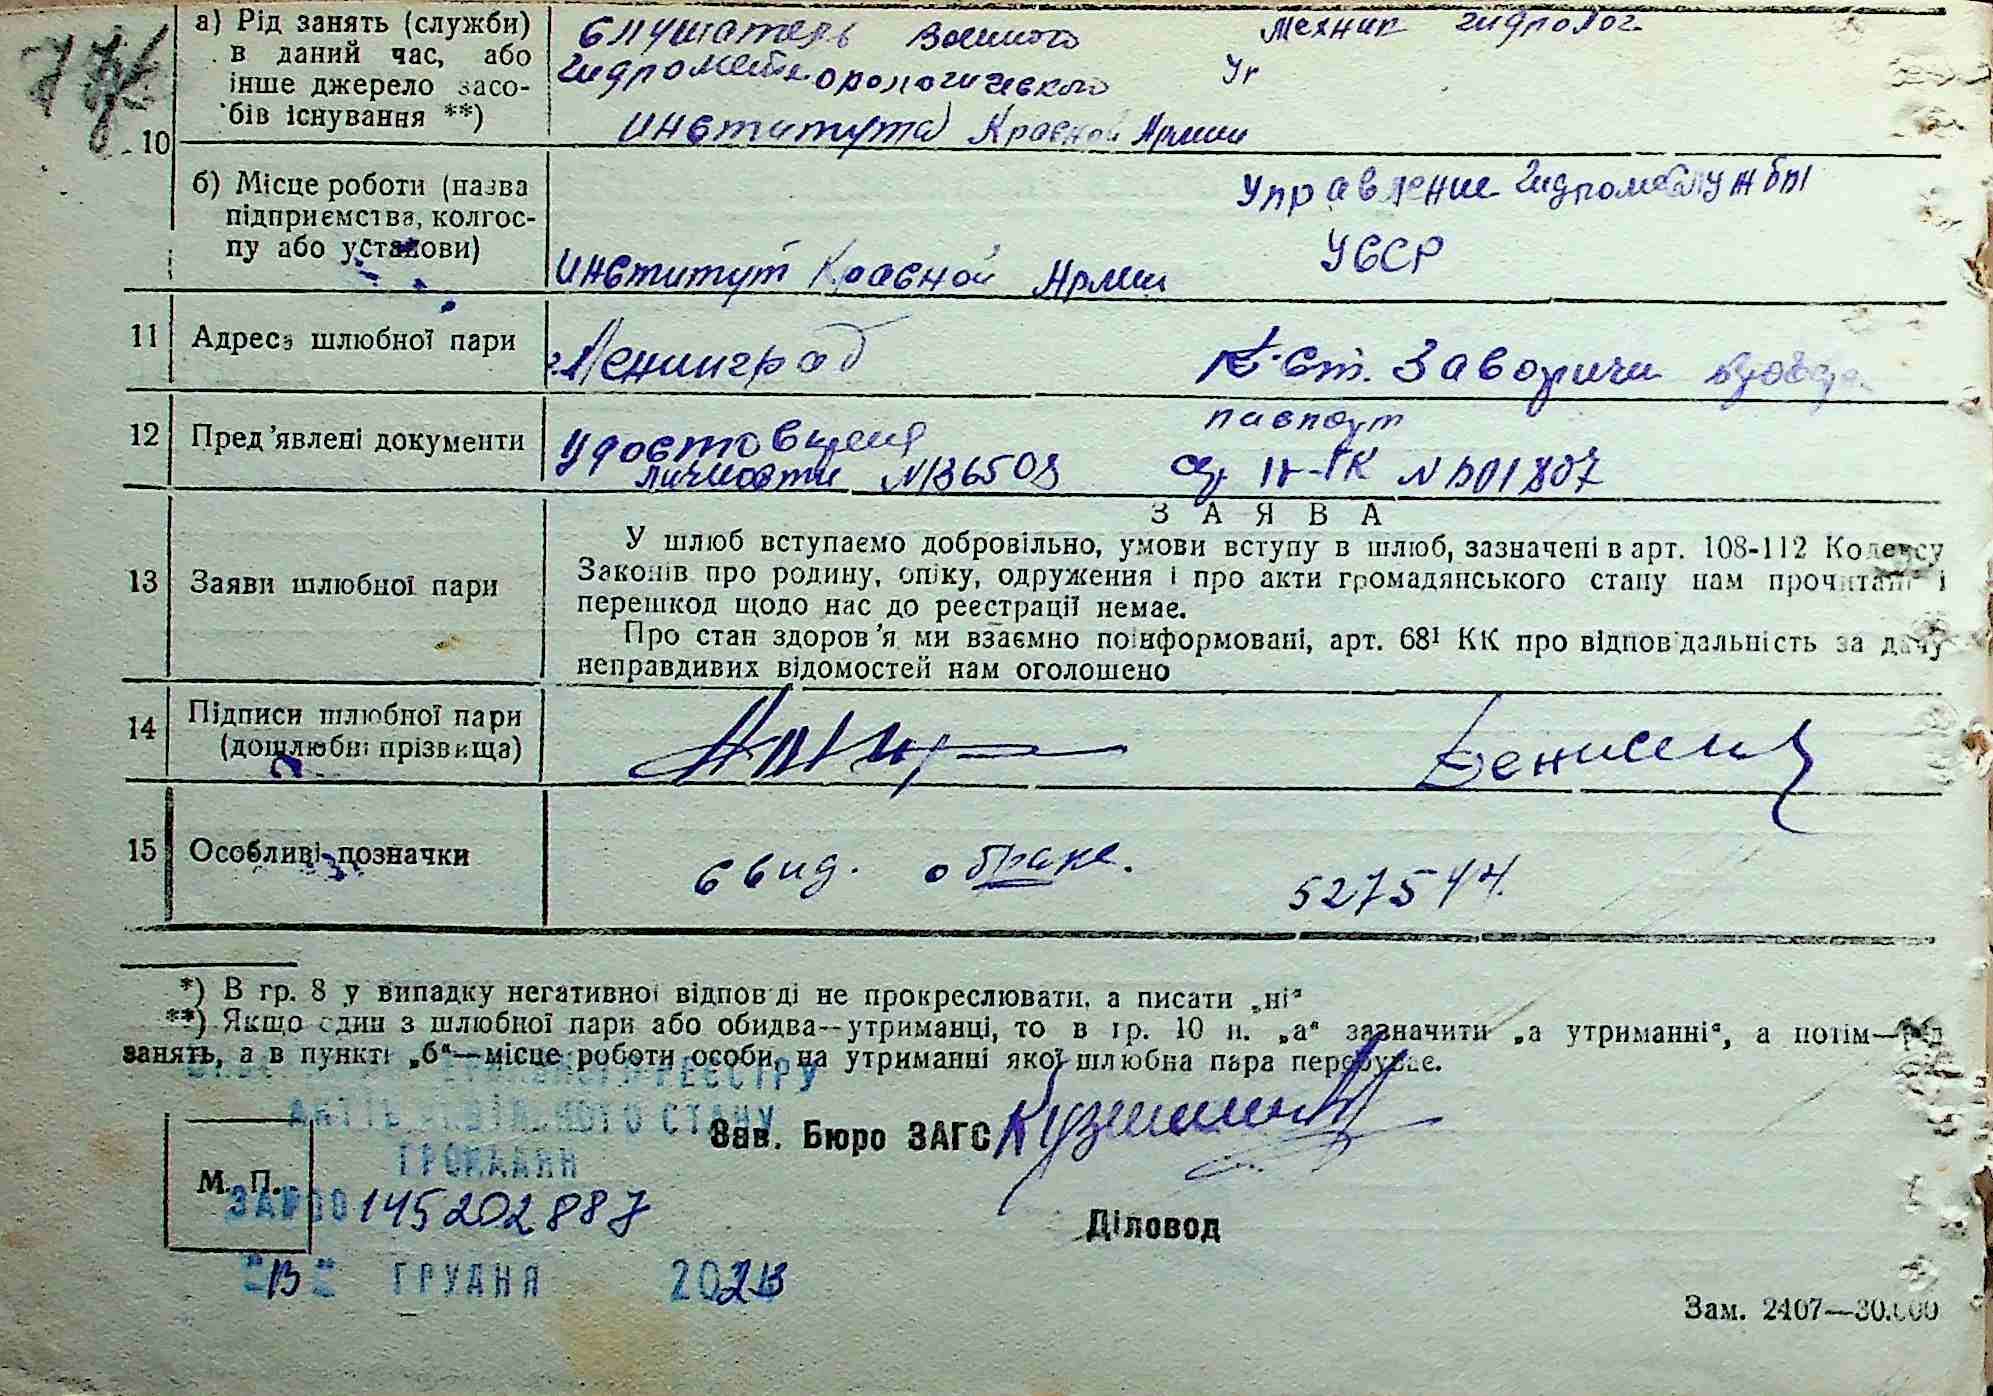 а) Рід занять (служби)
в даний час, або
інше джерело засо-
бів існування **)
10
Слушатель Военного
Гидрометеорологического
института Красной Армии
техник гидролог
б) Місце роботи (назва
підприємства, колгос-
пу або установи)
Институт Красной Армии
Управление Гидрометслужбы
УССР
11 Адреса шлюбної пари
г. Ленинград
ст. Заворичи
12 Пред'явлені документи
Удостоверения
личности
паспорт
13 Заяви шлюбної пари
ЗАЯВА
У шлюб вступаємо добровільно, умови вступу в шлюб, зазначені в арт. 108-112 Кодексу
Законів про родину, опіку, одруження і про акти громадянського стану нам прочитані і
перешкод щодо нас до реєстрації немає.
Про стан здоров'я ми взаємно поінформовані, арт. 68¹ КК про відповідальність за дачу
неправдивих відомостей нам оголошено
14 Підписи шлюбної пари
(дошлюбні прізвища)
15 Особливі позначки
Свид. о браке. 527544.
*) В гр. 8 у випадку негативної відповіді не прокреслювати, а писати „ні“
**) Якщо один з шлюбної пари або обидва—утриманці, то в гр. 10 п. „а“ зазначити „а утриманні“, а потім—рід
занять, а в пункті „б“—місце роботи особи, на утриманні якої шлюбна пара перебуває.
РЕЄСТРУ
АКТІВ ЦИВІЛЬНОГО СТАНУ
ГРОМАДЯН
Зав. Бюро ЗАГС
М. П.
145202887
Діловод
13 ГРУДНЯ 2023
Зам. 2407—30.000